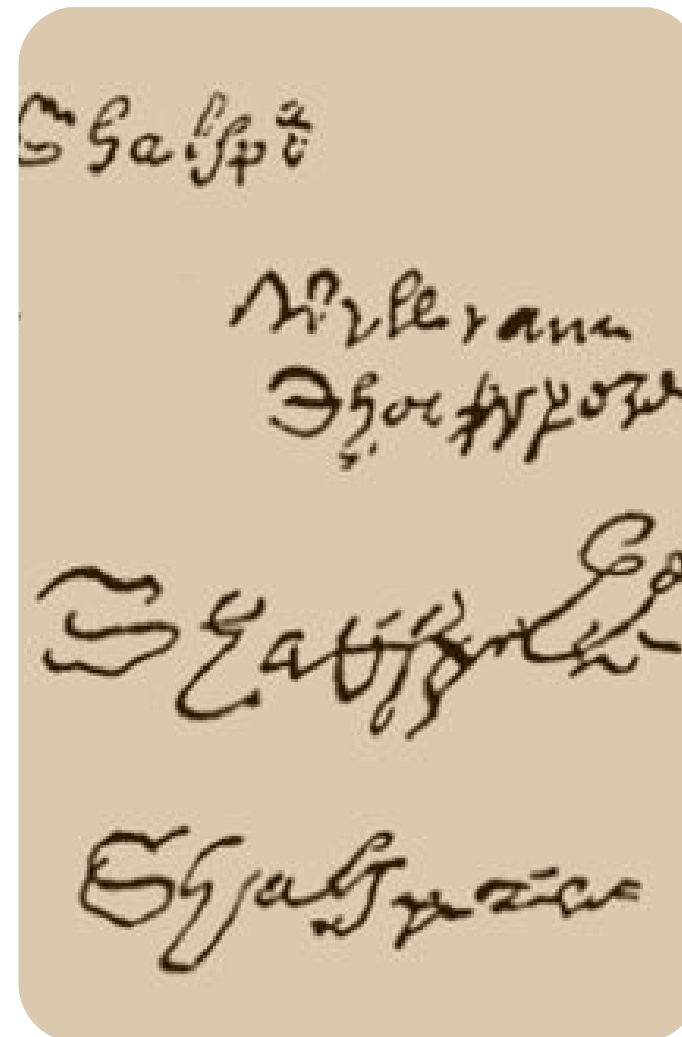 Shakspe
William
Shakspere
Shakspere
Shakspeare